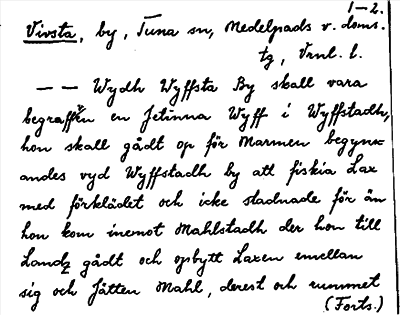 1–2.
Vivsta, by, Tuna sn, Medelpads v. doms.
tg, Vnl. l.
— — Wydh Wyffsta By skall vara
begraffen en Jetinna Wyff i Wyffstadh,
hon skall gådt op för Marmen begynn-
andes vyd Wyffstadh by att fiskia Lax
med förklädet och icke stadnade för än
hon kom inemot Mahlstadh der hon till
Landz gådt och opbytt Laxen emellan
sig och Jätten Mahl, derest och rummet
(Forts.)